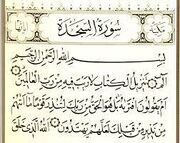 سُورَةُ السَّجْدَةِ
بِسْمِ اللَّهِ الرَّحْمَٰنِ الرَّحِيمِ
الٓمٓ تَنزِيلُ الْكِتَابِ لَا رَيْبَ فِيهِ مِن رَّبِّ الْعَالَمِينَ
أَمْ يَقُولُونَ افْتَرَاهُ بَلْ هُوَ الْحَقُّ مِن رَّبِّكَ لِتُنذِرَ قَوْمًا مَّا أَتَاهُم
مِّن نَّذِيرٍ مِّن قَبْلِكَ لَعَلَّهُمْ يَهْتَدُونَ اللَّهُ الَّذِي خَلَقَ